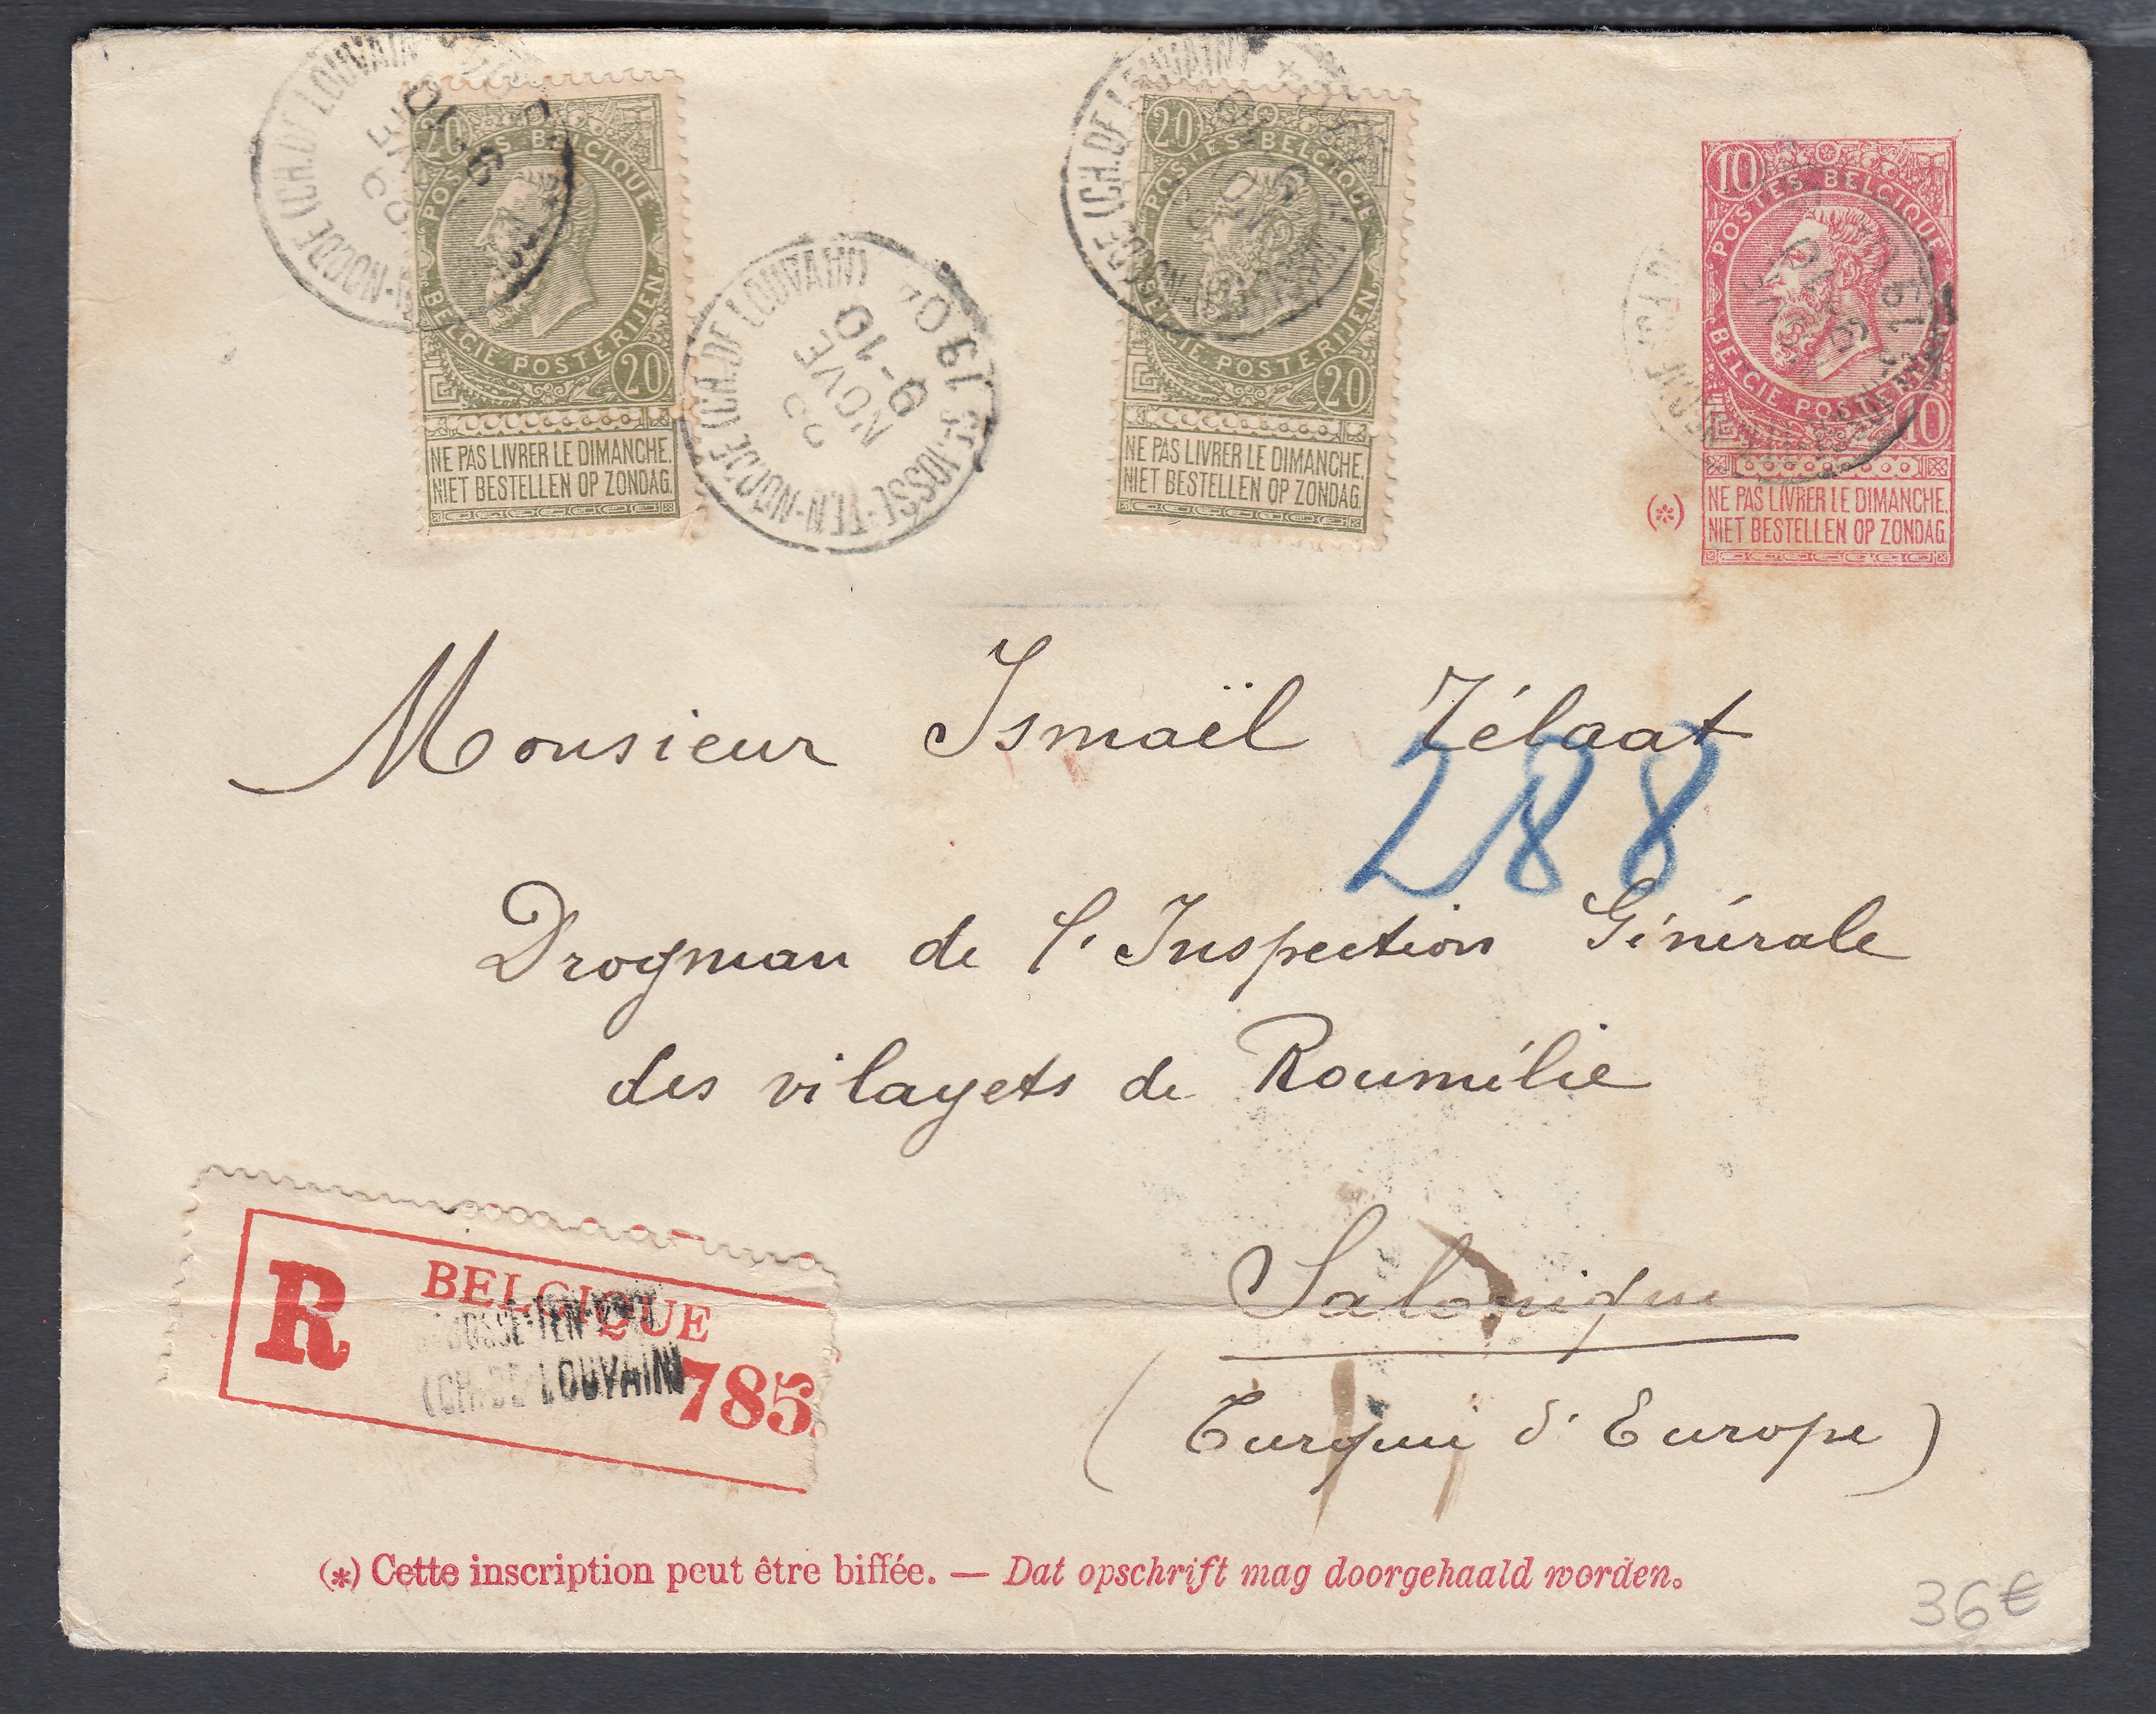 20
POSTES BELGIQUE
BELGIE POSTERIJEN
20
NE PAS LIVRER LE DIMANCHE.
NIET BESTELLEN OP ZONDAG.
ST-JOSSE-TEN-NOODE (CH. DE LOUVAIN)
9-10
NOVE
190
20
POSTES BELGIQUE
BELGIE POSTERIJEN
20
NE PAS LIVRER LE DIMANCHE.
NIET BESTELLEN OP ZONDAG.
10
POSTES BELGIQUE
BELGIE POSTERIJEN
10
(*)
NE PAS LIVRER LE DIMANCHE.
NIET BESTELLEN OP ZONDAG.
Monsieur Ismaël Zélaat
288
Drogman de l'Inspection Générale
des vilayets de Roumélie
Salonique
(Turquie d'Europe)
R
BELGIQUE
JOSSE-TEN-NOODE
(CH. DE LOUVAIN)
785
(*) Cette inscription peut être biffée. — Dat opschrift mag doorgehaald worden.
36€